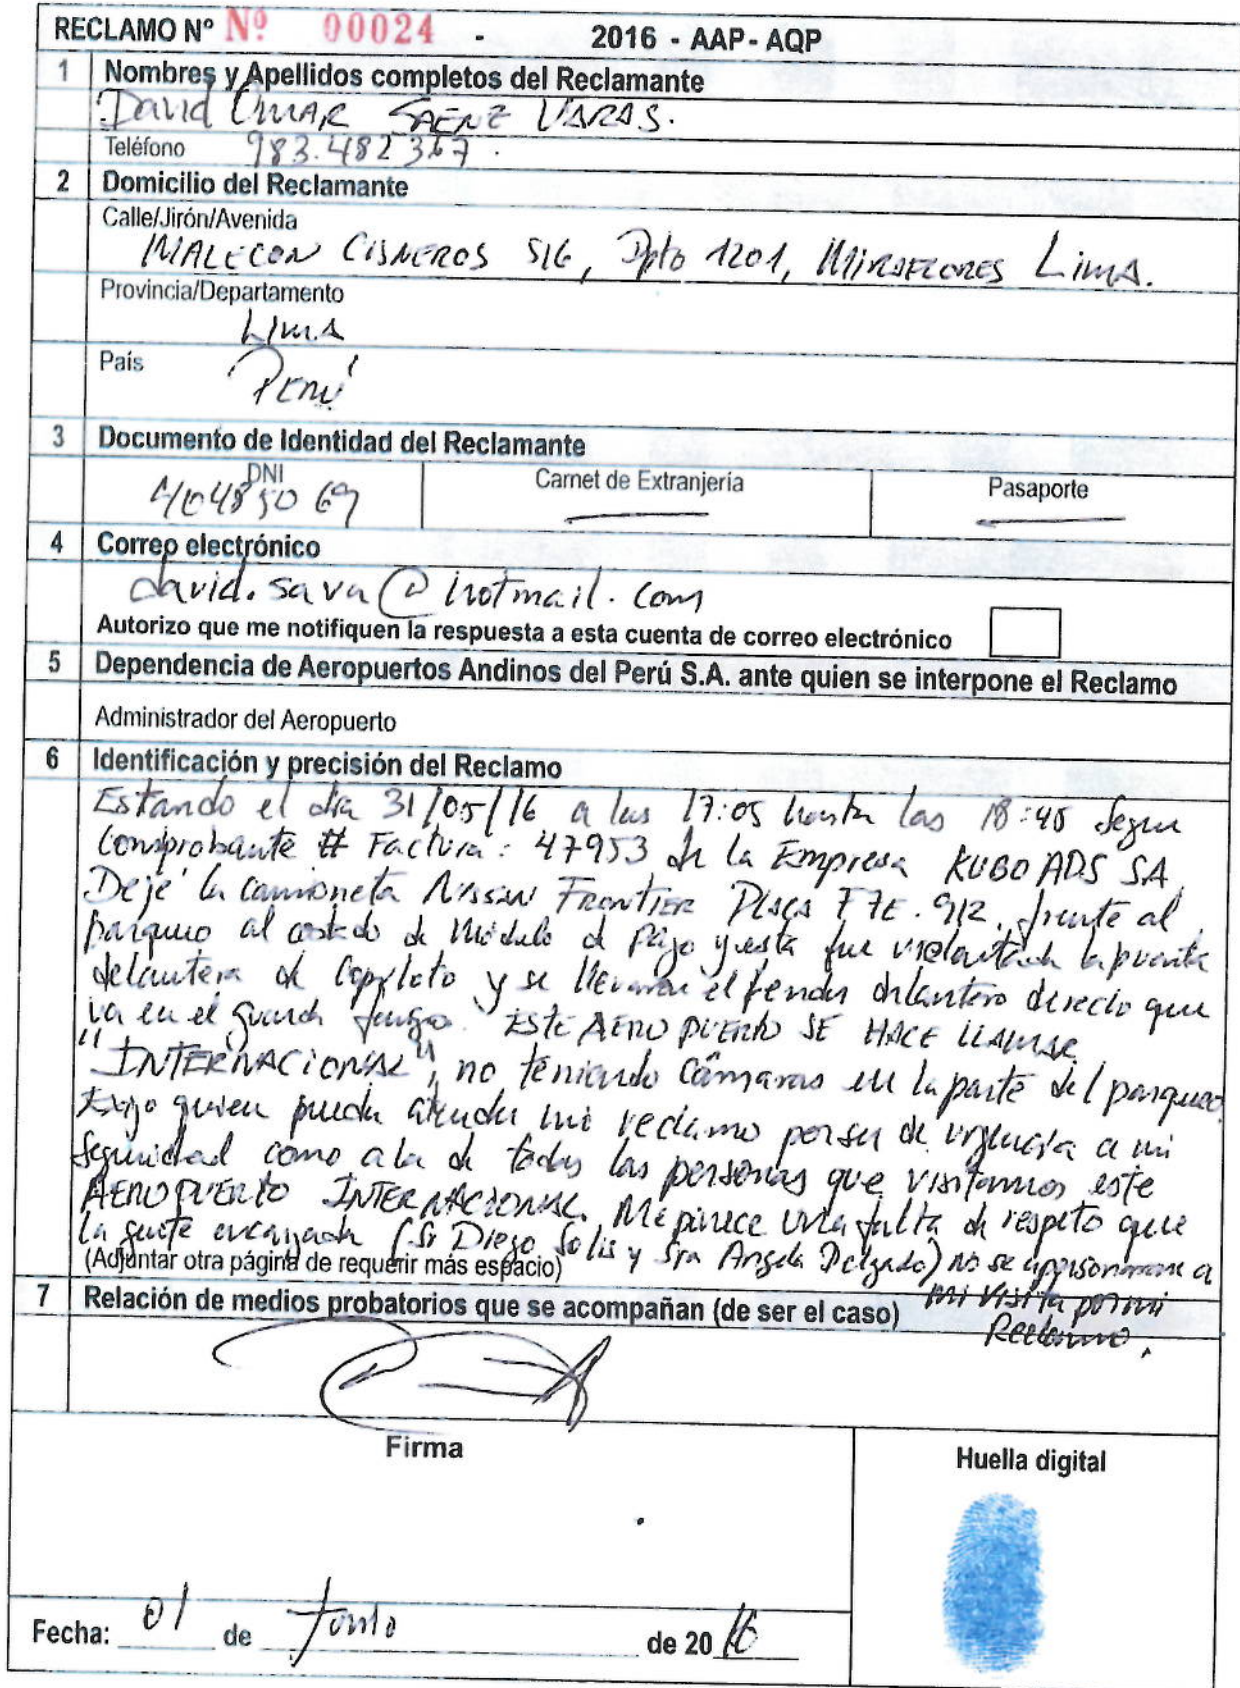 RECLAMO Nº Nº 00024 - 2016 - AAP - AQP
1 Nombres y Apellidos completos del Reclamante
David OMAR SAENZ VARAS.
Teléfono 983.482367.
2 Domicilio del Reclamante
Calle/Jirón/Avenida
MALECON CISNEROS 516, Dpto 1201, MIRAFLORES LIMA.
Provincia/Departamento
LIMA
País
PERÚ
3 Documento de Identidad del Reclamante
DNI Carnet de Extranjería Pasaporte
40485069
4 Correo electrónico
david.sava@hotmail.com
Autorizo que me notifiquen la respuesta a esta cuenta de correo electrónico
5 Dependencia de Aeropuertos Andinos del Perú S.A. ante quien se interpone el Reclamo
Administrador del Aeropuerto
6 Identificación y precisión del Reclamo
Estando el día 31/05/16 a las 17:05 hasta las 18:45 Segun
Comprobante # Factura: 47953 de la Empresa KUBO ADS SA
Dejé la camioneta NISSAN FRONTIER PLACA F7E.912, frente al
parqueo al costado de Módulo de pago y esta fue violentada la puerta
delantera de Copiloto y se llevaron el fender delantero derecho que
va en el guarda fango. ESTE AEROPUERTO SE HACE LLAMAR
"INTERNACIONAL", no teniendo Cámaras en la parte del parqueo.
Exijo quien pueda atender mi reclamo por ser de urgencia a mi
Seguridad como a la de todas las personas que visitamos este
AEROPUERTO INTERNACIONAL. Me parece una falta de respeto que
la gente encargada (Sr Diego Solis y Sra Angela Delgado) no se apersonaron a
mi visita por mi
Reclamo.
(Adjuntar otra página de requerir más espacio)
7 Relación de medios probatorios que se acompañan (de ser el caso)
Firma
Huella digital
Fecha: 01 de Junio de 2016